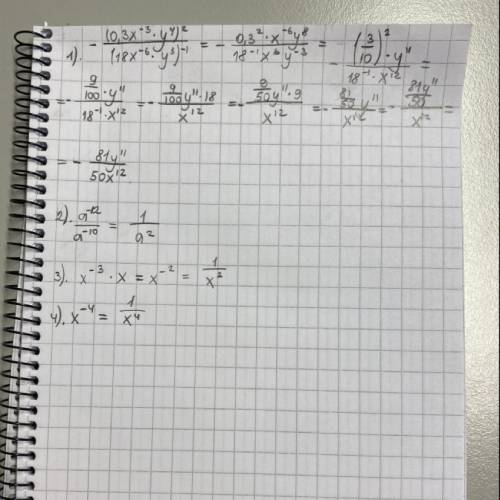 1). - (0,3x⁻³·y⁴)² / (18x⁻⁶·y³)⁻¹ = - 0,3²·x⁻⁶y⁸ / 18⁻¹x⁶y⁻³ = - (3/10)²·y¹¹ / 18⁻¹·x¹² =
= - 9/100·y¹¹ / 18⁻¹·x¹² = - 9/100y¹¹·18 / x¹² = - 9/50y¹¹·9 / x¹² = - 81/50y¹¹ / x¹² = - 81y¹¹/50 / x¹² =
= - 81y¹¹ / 50x¹²
2). a⁻¹² / a⁻¹⁰ = 1 / a²
3). x⁻³·x = x⁻² = 1 / x²
4). x⁻⁴ = 1 / x⁴